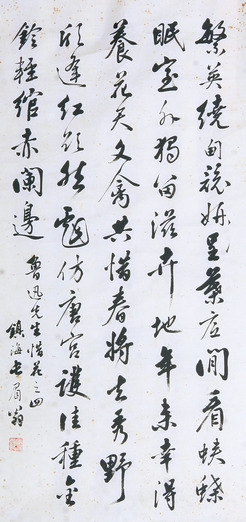 繁英繞甸競妍呈葉底閒看蛺蝶
眠室外獨留滋卉地年来幸得
養花天文禽共惜春將去秀野
欣逢紅欲然戲仿唐宮護佳種金
鈴輕綰赤闌邊
魯迅先生惜花之四
鎮海長眉翁